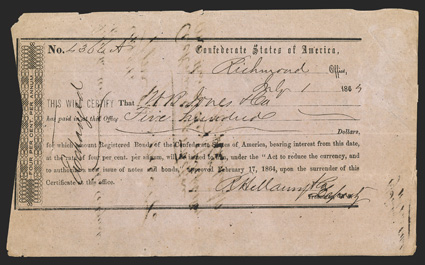 No. 4366
Confederate States of America,
Richmond Office,
July 1 1864
THIS WILL CERTIFY That Jones & Co
has paid in at this Office Five Hundred
Dollars,
for which amount Registered Bonds of the Confederate States of America, bearing interest from this date,
at the rate of four per cent. per annum, will be issued to under the "Act to reduce the currency, and
to authorize a new issue of notes and bonds," approved February 17, 1864, upon the surrender of this
Certificate at this office.
FOUR PER CENT. PER ANNUM